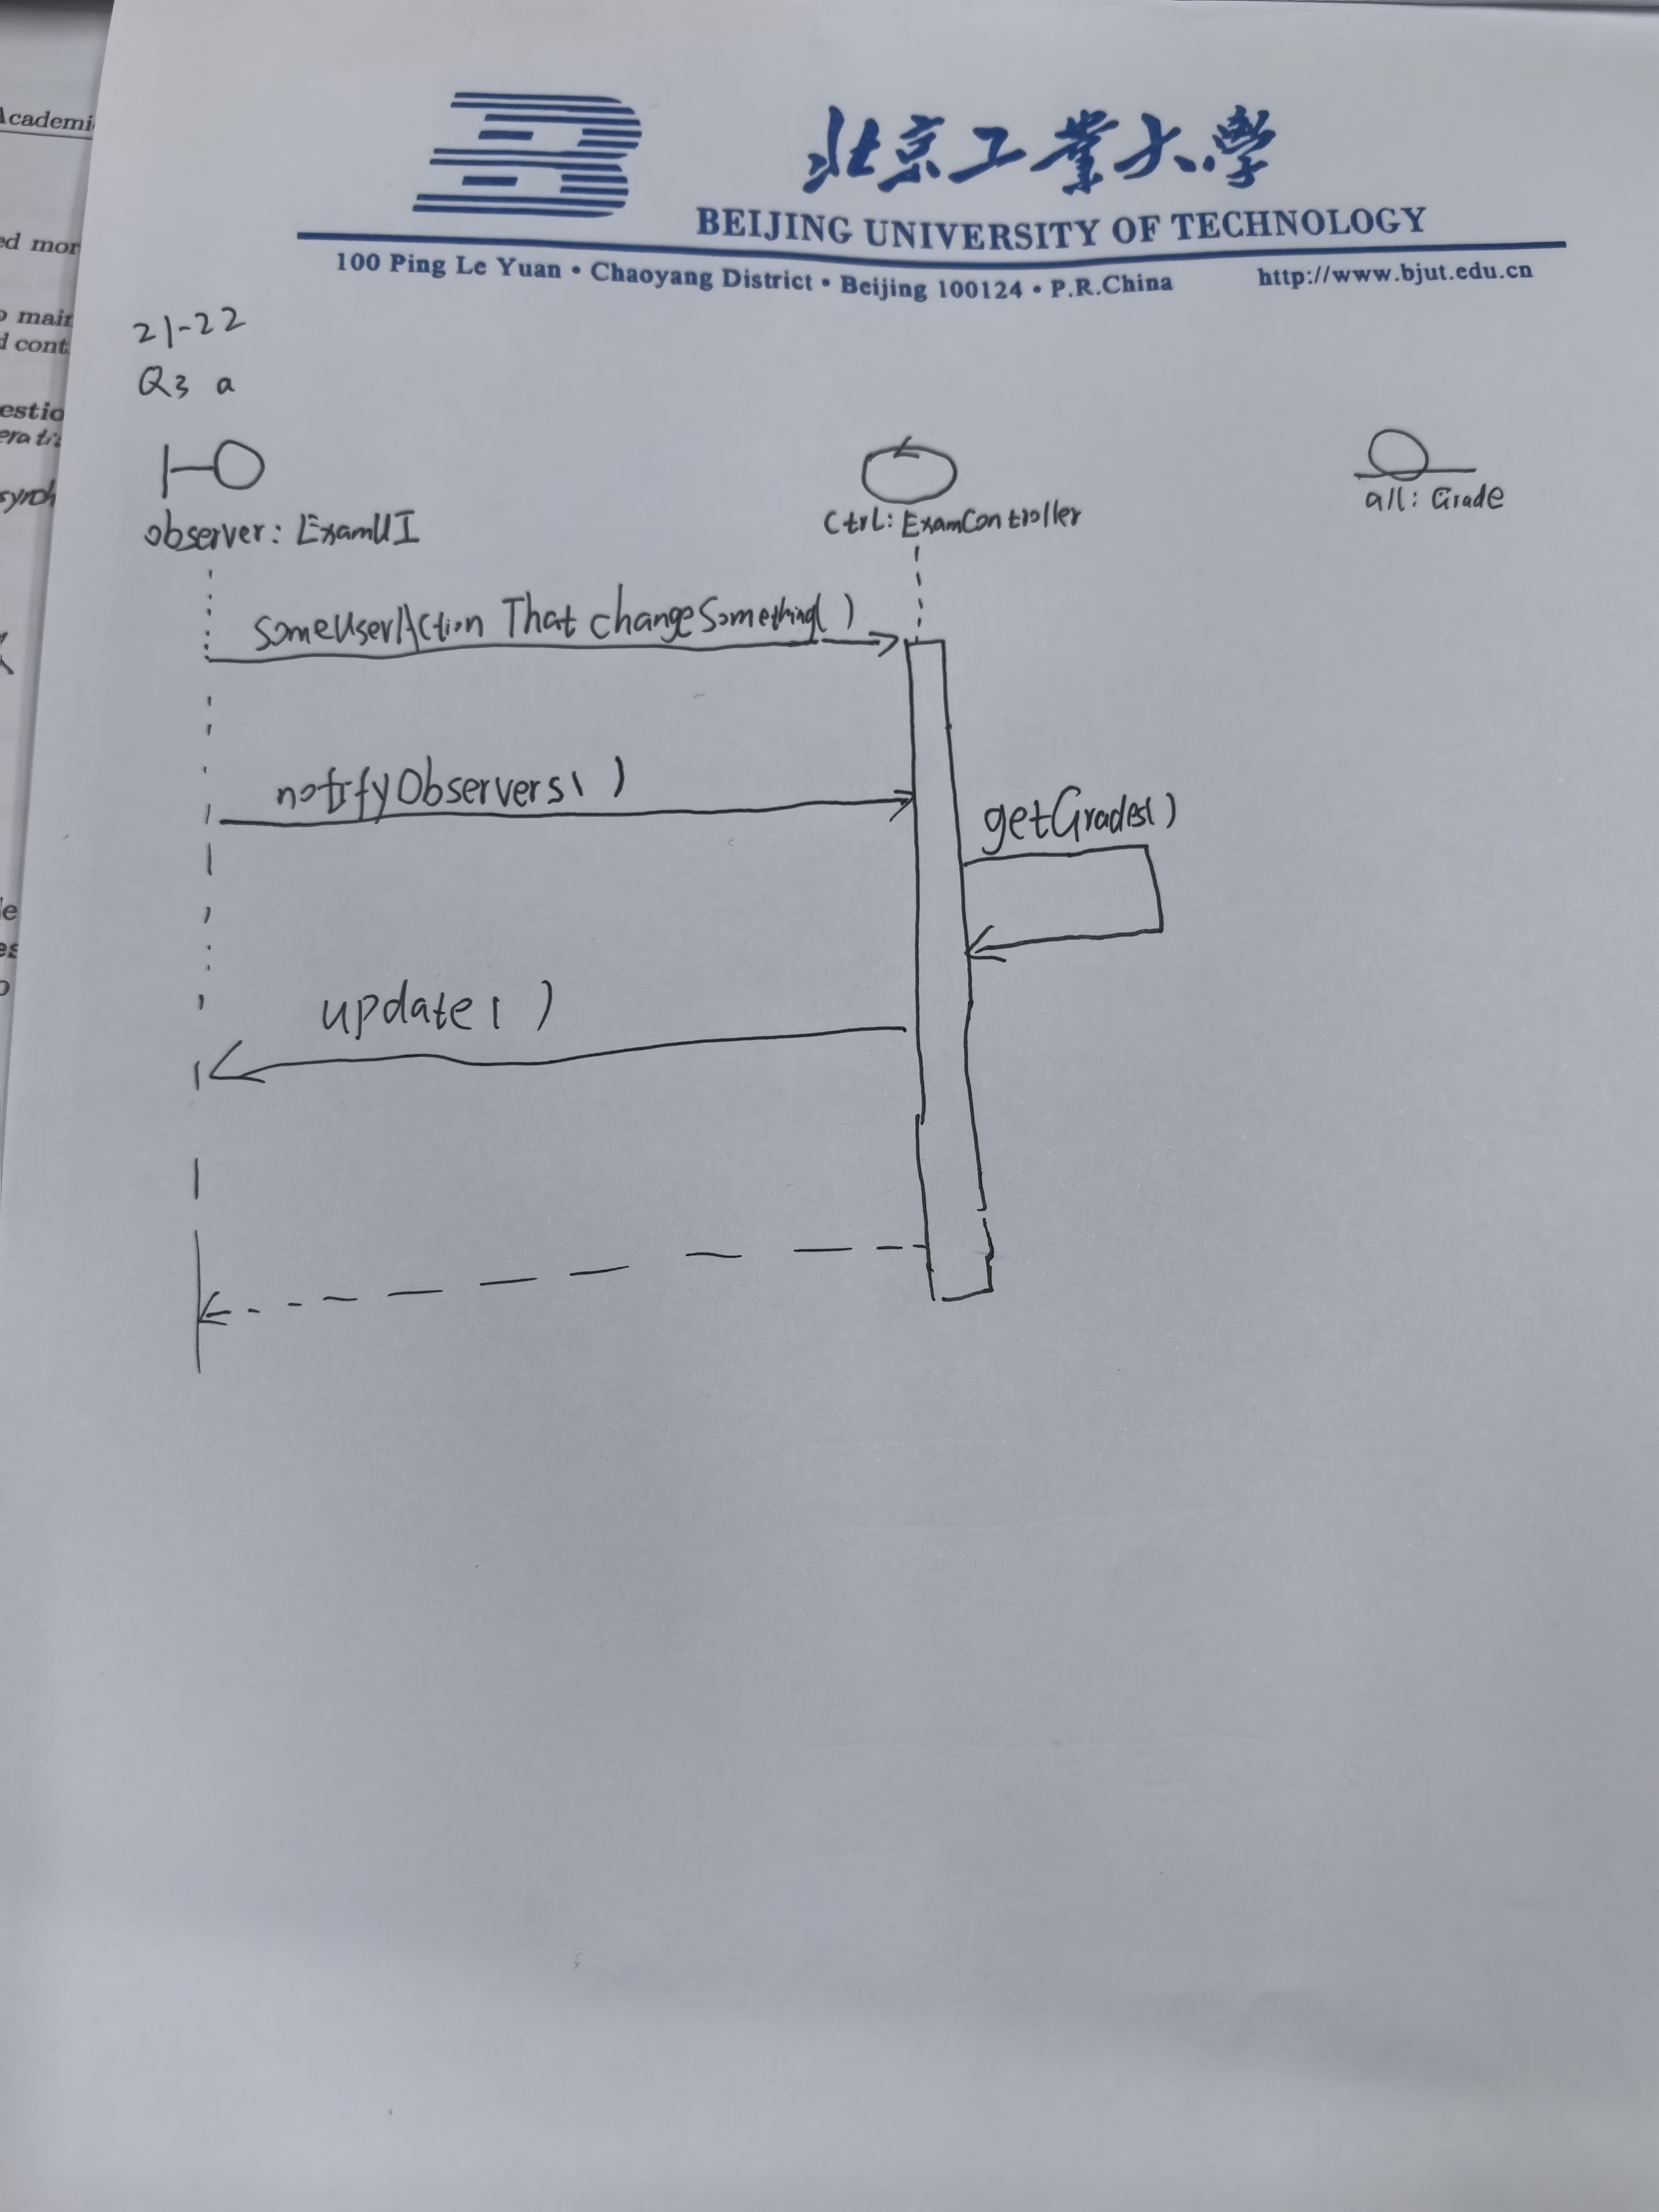 Academi
ed mor
o mair
d cont
estio
era ti
synch
le
es
北京工業大學
BEIJING UNIVERSITY OF TECHNOLOGY
100 Ping Le Yuan • Chaoyang District • Beijing 100124 • P.R.China http://www.bjut.edu.cn
21-22
Q3 a
observer: ExamUI
Ctrl: ExamController
all: Grade
someUserAction That changeSomething()
notifyObservers()
getGrades()
update()